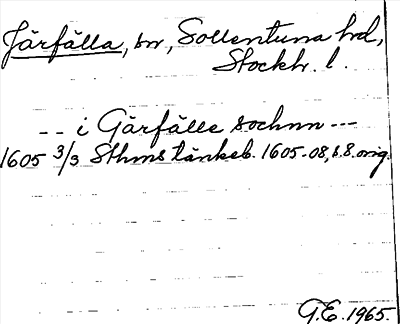 Järfälla, sn, Sollentuna hd,
Stockh. l.
-- i Gärfälle sochnn ---
1605 3/3 Sthms tänkeb. 1605-08, s. 8. orig.
G.E. 1965.